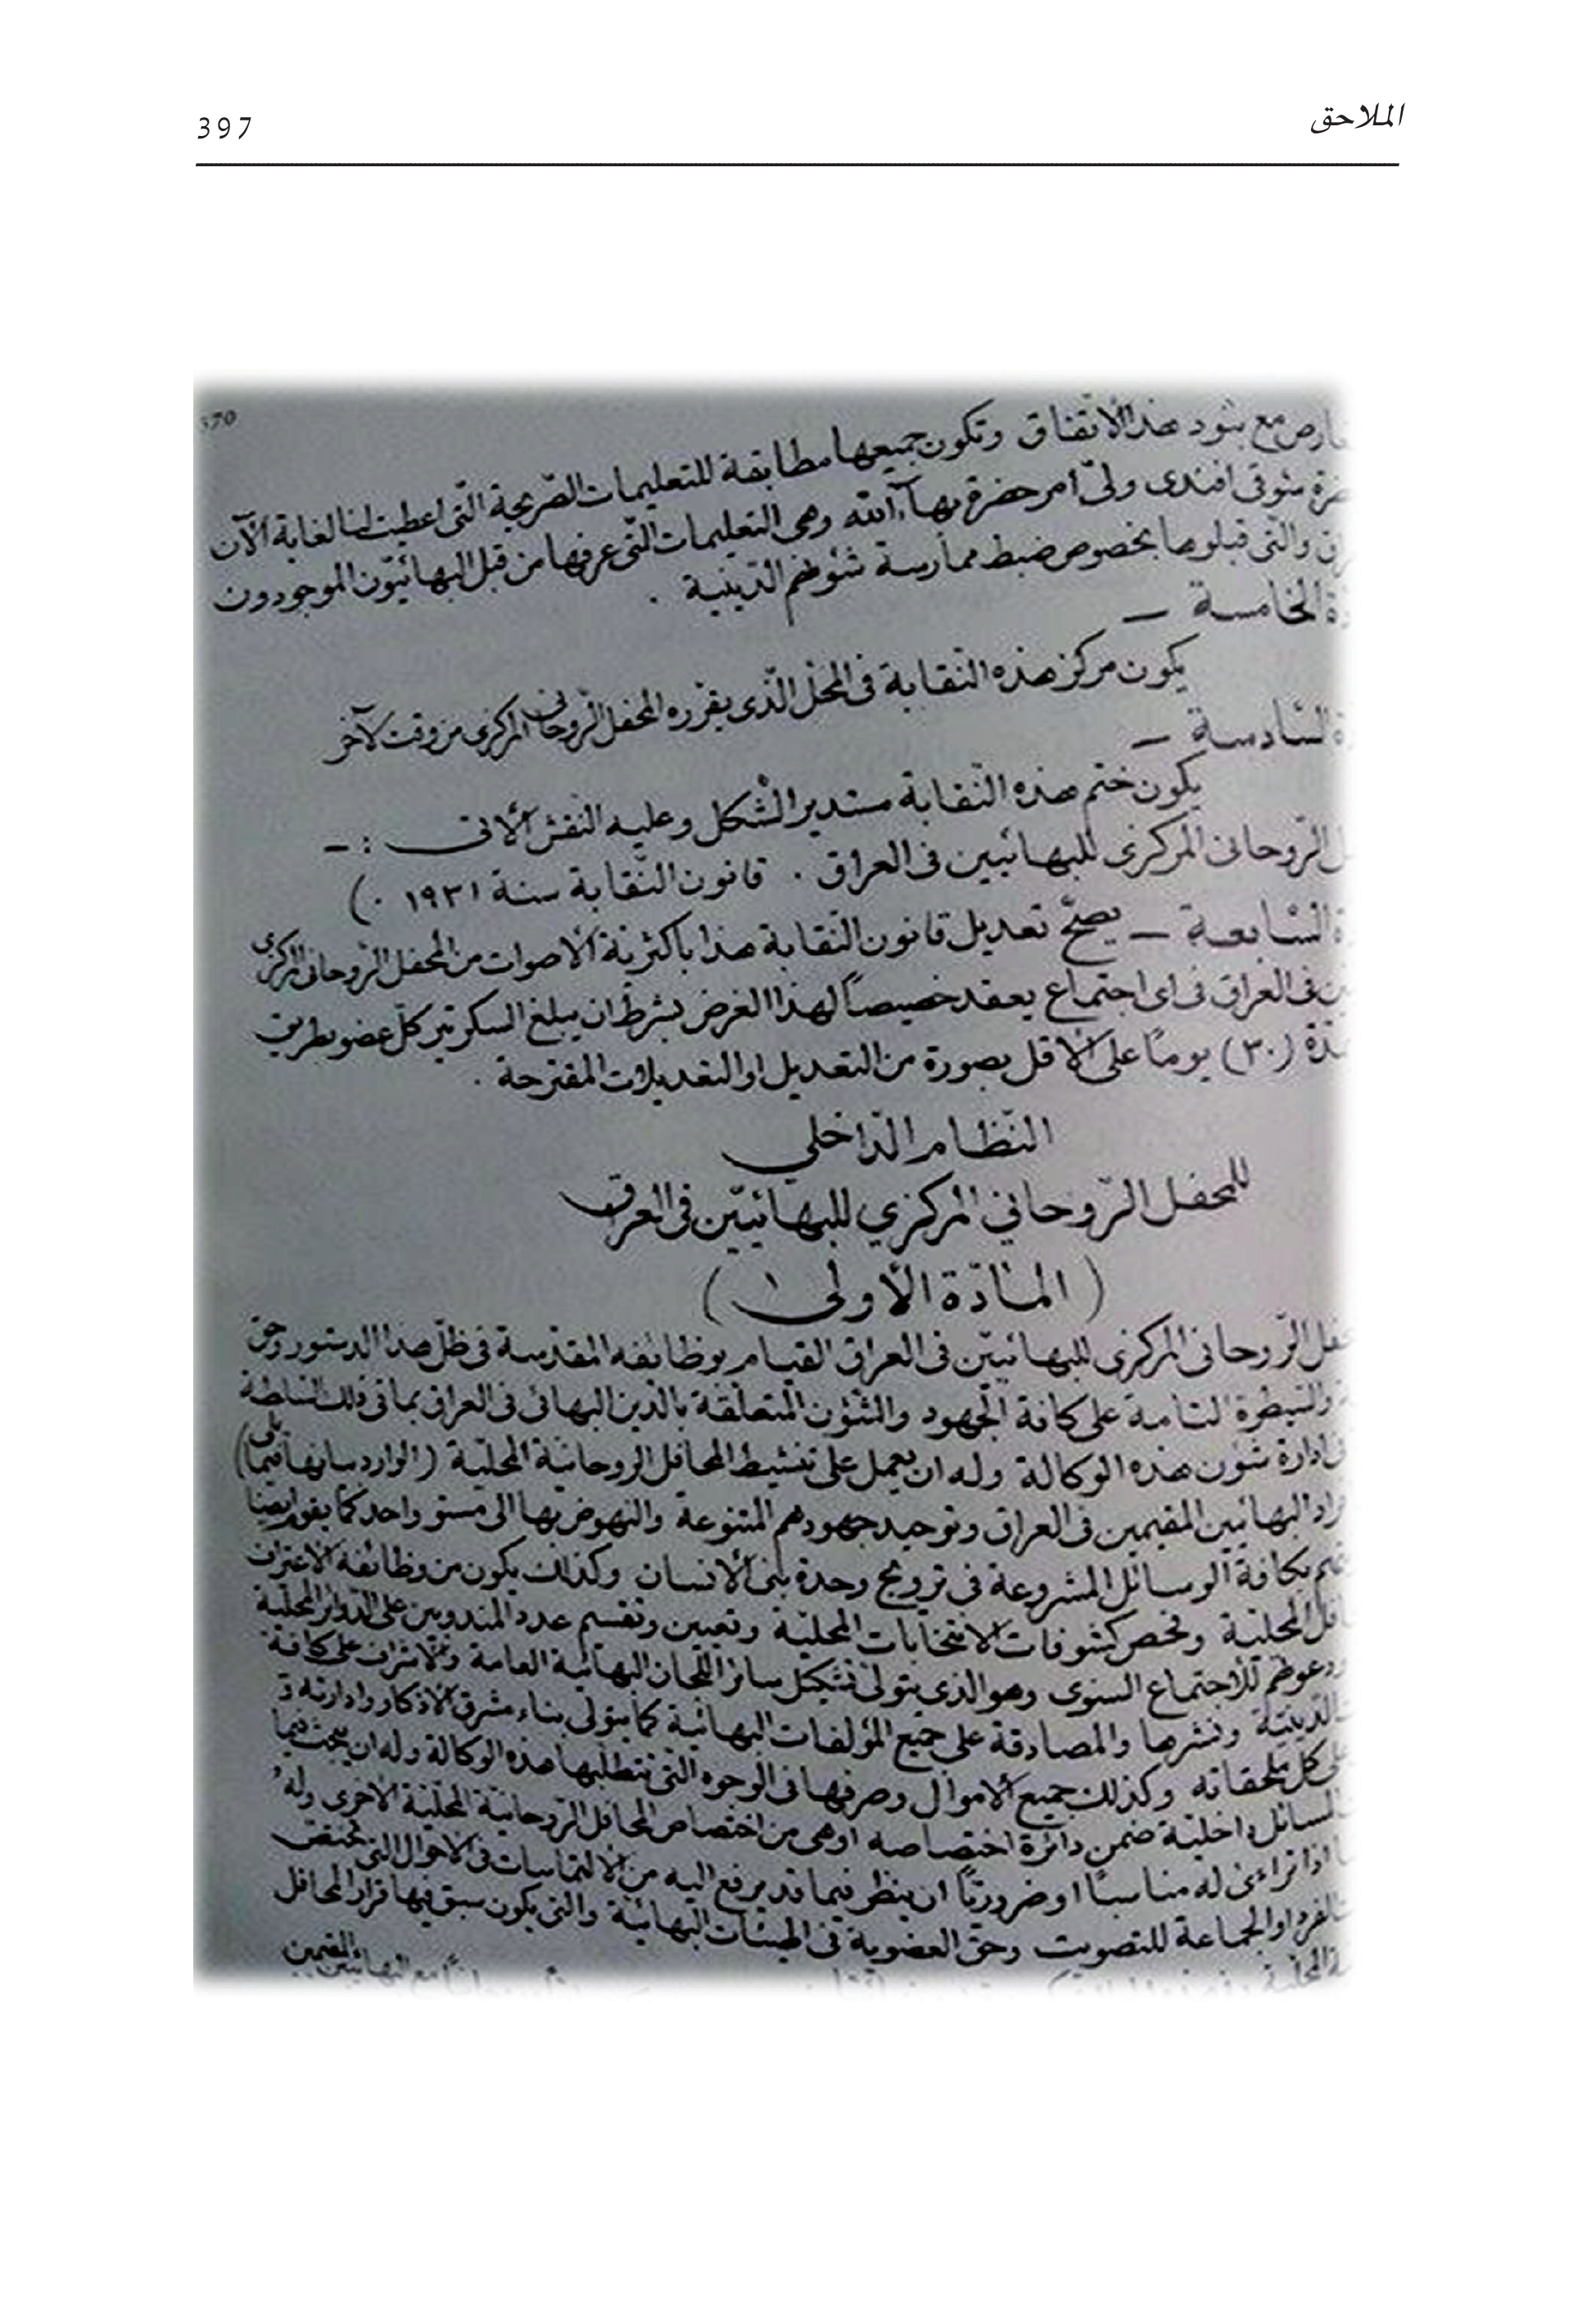 الملاحق
397
370
مع بنود هذا الاتفاق وتكون جميعها مطابقة للتعليمات الصّريحة الّتى اعطيت لنا لغاية الآن
شوقى افندى ولىّ امر حضرة بهآءالله وهى التعليمات الّتى عرفها من قبل البهائيّون الموجودون
والّتى قبلوها بخصوص ضبط ممارسة شئونهم الدّينية .
الخامسة –
يكون مركز هذه النّقابة فى المحلّ الّذى يقرره المحفل الرّوحانى المركزى من وقت لآخر
السّادسة –
يكون ختم هذه النّقابة مستدير الشّكل وعليه النّقش الآتى : –
الرّوحانى المركزى للبهائيين فى العراق . قانون النّقابة سنة ١٩٣١ . )
السّابعة – يصحّ تعديل قانون النّقابة هذا باكثريّة الاصوات من المحفل الرّوحانى المركزى
فى العراق فى اى اجتماع يعقد خصيصاً لهذا الغرض بشرط ان يبلغ السكرتير كلّ عضو بطريق
(٣٠) يوماً على الاقل بصورة من التعديل او التعديلات المقترحة .
النّظام الدّاخلي
للمحفل الرّوحاني المركزي للبهائيّين فى العراق
( المادّة الأولى )
الرّوحانى المركزى للبهائيّين فى العراق القيام بوظائفه المقدسة فى ظلّ هذا الدستور وحق
والسّيطرة التامة على كافة الجهود والشّؤن المتعلّقة بالدّين البهائى فى العراق بما فى ذلك السّلطة
ادارة شؤن هذه الوكالة وله ان يعمل على تنشيط المحافل الروحانية المحليّة (الوارد بيانها فيما يلى)
البهائيين المقيمين فى العراق وتوحيد جهودهم المتنوعة والنهوض بها الى مستو واحد كما يقوم ايضا
بكافة الوسائل المشروعة فى ترويج وحدة بنى الانسان وكذلك يكون من وظائفه الاعتراف
المحلية وفحص كشوفات الانتخابات المحلية وتعيين وتقسيم عدد المندوبين على الدوائر المحلية
ودعوتهم للاجتماع السنوى وهو الذى يتولّى تشكيل سائر اللّجان البهائية العامة والاشراف على كافة
الدّينيّة ونشرها والمصادقة على جميع المؤلفات البهائية كما يتولى بناء مشرق الاذكار وادارته
كل ملحقاته وكذلك جميع الاموال وصرفها فى الوجوه التى تتطلبها هذه الوكالة وله ان يبحث فيما
داخلية ضمن دائرة اختصاصه اوهى من اختصاص المحافل الرّوحانية المحليّة الاخرى وله
اذا تراءى له مناسباً او ضروريّاً ان ينظر فيما قد يرفع اليه من الالتماسات فى الاحوال التى تختص
او الجماعة للتصويت وحق العضوية فى الهيئات البهائيّة والتى يكون سبق فيها قرار المحافل
المحلية